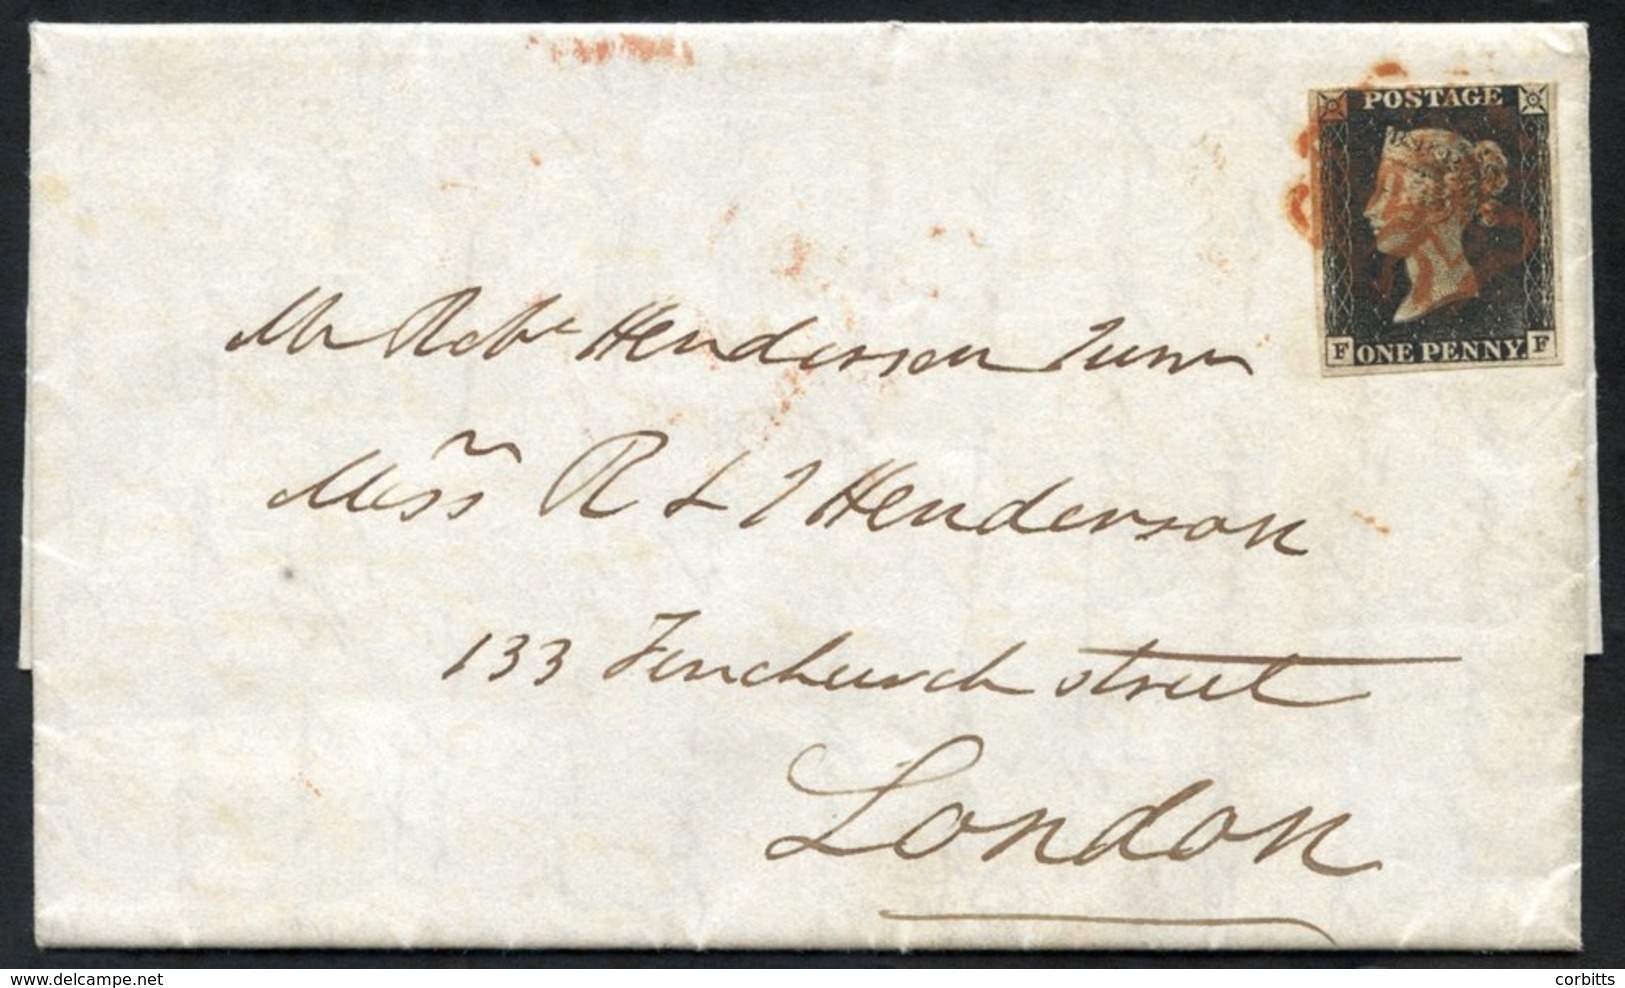 POSTAGE
F ONE PENNY. F
Mr Robt Henderson Junr
Misss R & J Henderson
133 Fenchurch street
London
delcampe.net
corbitts